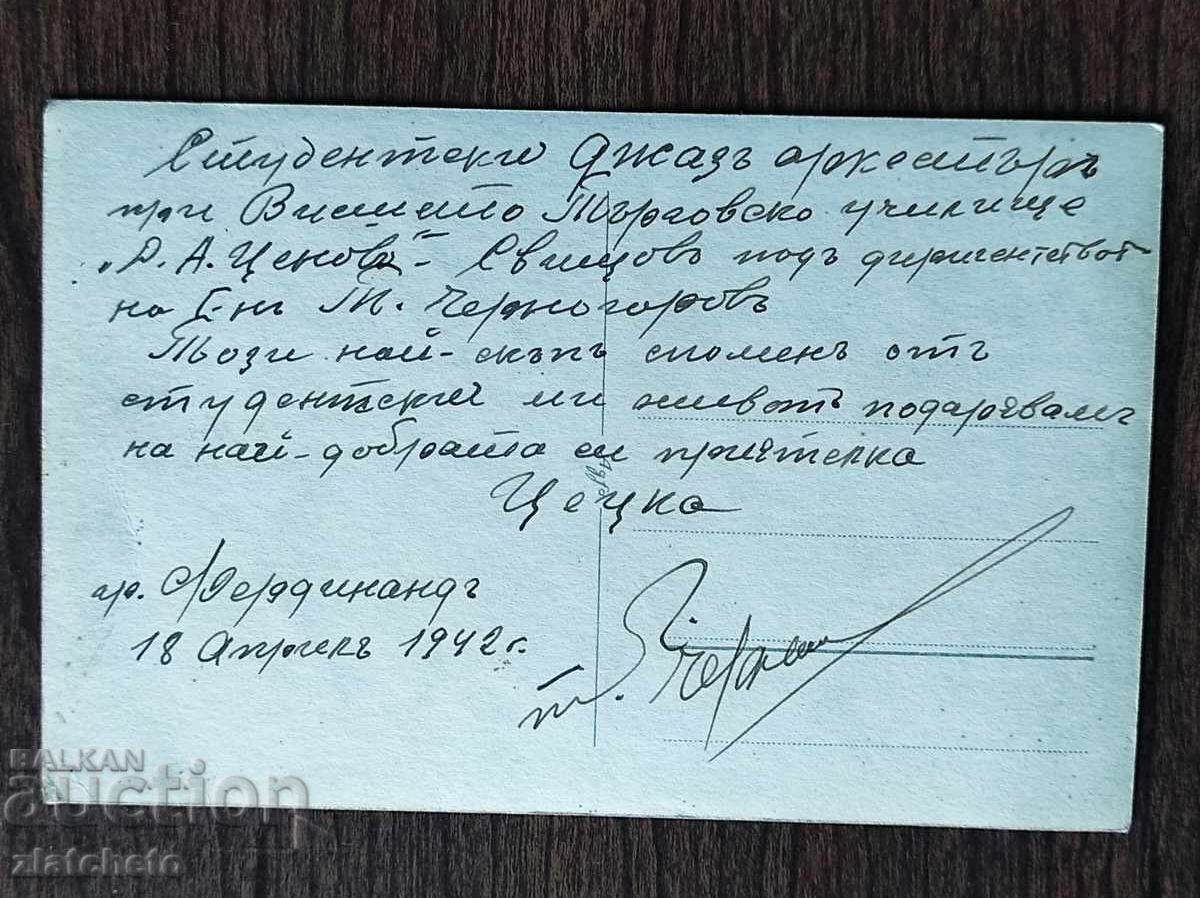 Студентски Джазъ оркестъръ
при Висшето Търговско училище
„Д. А. Ценовъ“ – Свищовъ подъ диригентството
на Г-нъ Т. Черногоровъ
Този най-скъпъ споменъ отъ
студентския ми животъ подарявамъ
на най-добрата си приятелка
Цецка
гр. Фердинандъ
18 Априлъ 1942 г.
BALKAN
auction
zlatcheto